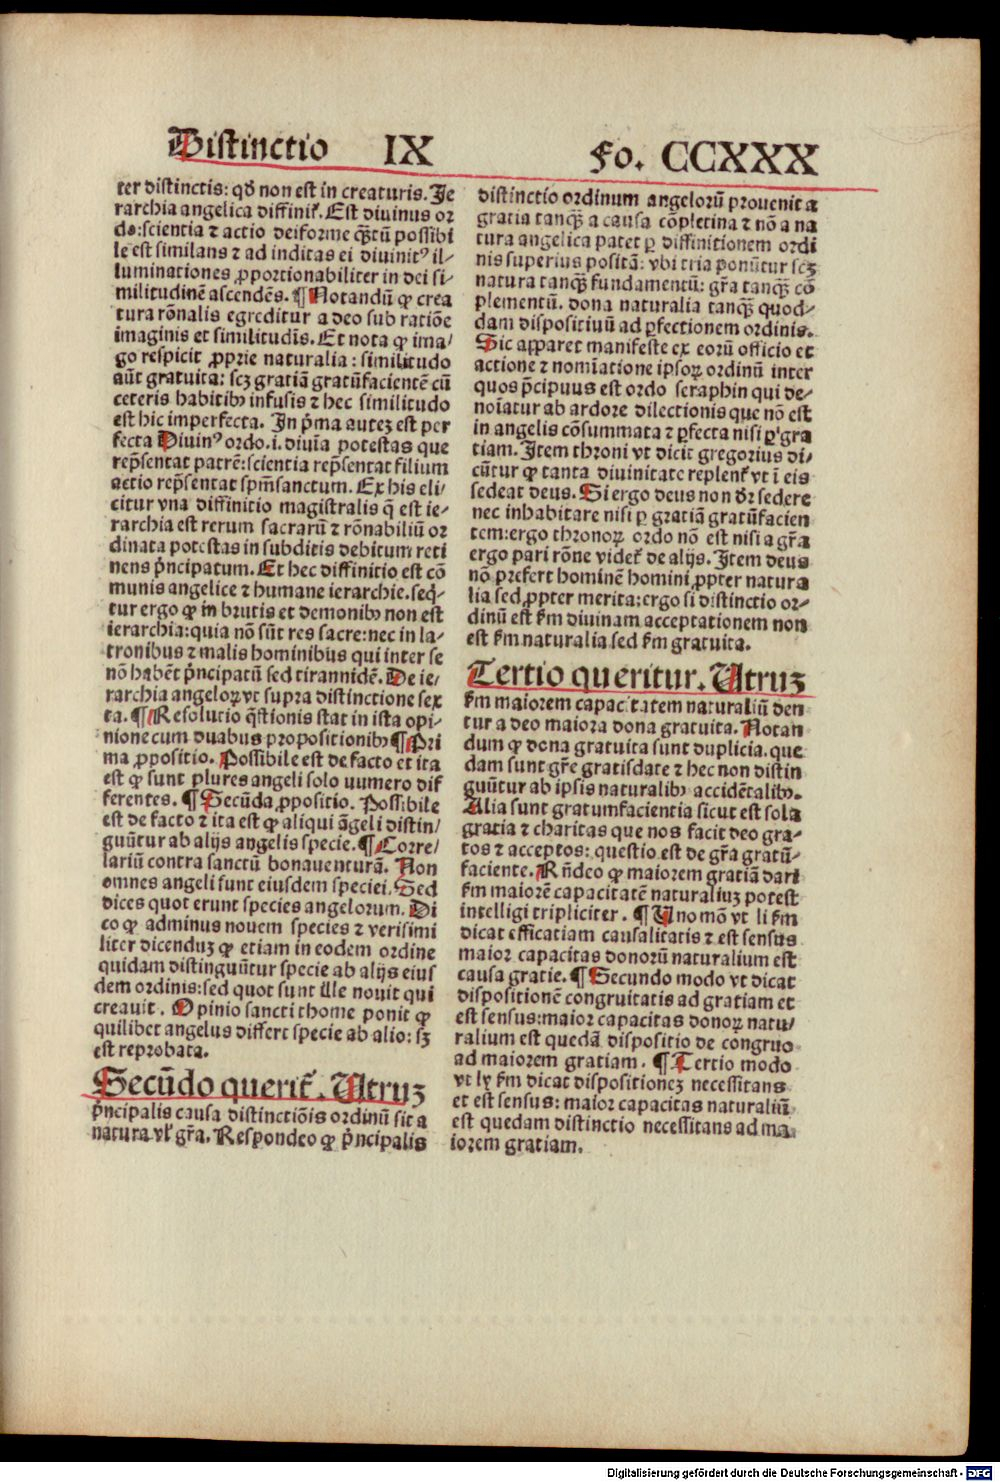 Distinctio IX Fo. CCXXX
ter distinctis: qđ non est in creaturis. Je
rarchia angelica diffinit᷑. Est divinus or
do: scientia ⁊ actio deiforme q̄ꝫtū possibi
le est similans ⁊ ad inditas ei divinitꝰ il⸗
luminationes ꝓportionabiliter in dei si⸗
militudinē ascendēs. ¶ Notandū ꝙ crea
tura rōnalis egreditur a deo sub ratiōe
imaginis et similitudīs. Et nota ꝙ ima⸗
go respicit ꝓprie naturalia: similitudo
aūt gratuita: scꝫ gratiā gratūfacientē cū
ceteris habitibꝰ infusis ⁊ hec similitudo
est hic imperfecta. In pͥma auteꝫ est per
fecta Divinꝰ ordo .i. divīa potestas que
rep̄sentat patrē: scientia rep̄sentat filium
actio rep̄sentat sp̄msanctum. Ex his eli⸗
citur vna diffinitio magistralis q̄ est ie⸗
rarchia est rerum sacrarū ⁊ rōnabiliū or
dinata potestas in subditis debitum reti
nens pͥncipatum. Et hec diffinitio est cō
munis angelice ⁊ humane ierarchie. seq̄⸗
tur ergo ꝙ in brutis et demonibꝰ non est
ierarchia: quia nō sūt res sacre: nec in la⸗
tronibus ⁊ malis hominibus qui inter se
nō habēt pͥncipatū sed tirannidē. De ie⸗
rarchia angeloꝝ vt supra distinctione sex
ta. ¶ Resolutio q̄stionis stat in ista opi⸗
nione cum duabus propositionibꝰ ¶ Pri
ma ꝓpositio. Possibile est de facto et ita
est ꝙ sunt plures angeli solo uumero dif
ferentes. ¶ Secūda ꝓpositio. Possibile
est de facto ⁊ ita est ꝙ aliqui āgeli distin⸗
guūtur ab alijs angelis specie. ¶ Corre⸗
lariū contra sanctū bonaventurā. Non
omnes angeli sunt eiusdem speciei. Sed
dices quot erunt species angelorum. Di
co ꝙ adminus novem species ⁊ verisimi
liter dicenduꝫ ꝙ etiam in eodem ordine
quidam distinguūtur specie ab alijs eius
dem ordinis: sed quot sunt ille novit qui
creavit. Opinio sancti thome ponit ꝙ
quilibet angelus differt specie ab alio: sꝫ
est reprobata.
Secūdo querit᷑. Utruꝫ
pͥncipalis causa distinctiōis ordinū sit a
natura vl̓ gr̄a. Respondeo ꝙ pͥncipalis
distinctio ordinum angelorū provenit a
gratia tanq̄ꝫ a causa cōpletiua ⁊ nō a na
tura angelica patet ꝑ diffinitionem ordi
nis superius positā: vbi tria ponūtur scꝫ
natura tanq̄ꝫ fundamentū: gr̄a tanq̄ꝫ cō
plementū. dona naturalia tanq̄ꝫ quod⸗
dam dispositiuū ad ꝑfectionem ordinis.
Sic apparet manifeste ex eorū officio et
actione ⁊ nomīatione ipsoꝝ ordinū inter
quos p̄cipuus est ordo seraphin qui de⸗
noīatur ab ardore dilectionis que nō est
in angelis cōsummata ⁊ ꝑfecta nisi ꝑ gra
tiam. Item throni vt dicit gregorius di⸗
cūtur ꝙ tanta divinitate replent᷑ vt ī eis
sedeat deus. Si ergo deus non dr̄ sedere
nec inhabitare nisi ꝑ gratiā gratūfacien
tem: ergo thronoꝝ ordo nō est nisi a gr̄a
ergo pari rōne videt᷑ de alijs. Item deus
nō prefert hominē homini ꝓpter natura
lia sed ꝓpter merita: ergo si distinctio or⸗
dinū est ẜm divinam acceptationem non
est ẜm naturalia sed ẜm gratuita.
Tertio queritur. Utruꝫ
ẜm maiorem capacitatem naturaliū den
tur a deo maiora dona gratuita. Notan
dum ꝙ dona gratuita sunt duplicia. que
dam sunt gr̄e gratisdate ⁊ hec non distin
guūtur ab ipsis naturalibꝰ accidētalibꝰ.
Alia sunt gratumfacientia sicut est sola
gratia ⁊ charitas que nos facit deo gra⸗
tos ⁊ acceptos: questio est de gr̄a gratū⸗
faciente. Rn̄deo ꝙ maiorem gratiā dari
ẜm maiorē capacitatē naturaliuꝫ potest
intelligi tripliciter. ¶ Uno mō vt li ẜm
dicat efficatiam causalitatis ⁊ est sensus
maior capacitas donorū naturalium est
causa gratie. ¶ Secundo modo vt dicat
dispositionē congruitatis ad gratiam et
est sensus: maior capacitas donoꝝ natu⸗
ralium est quedā dispositio de congruo
ad maiorem gratiam. ¶ Tertio modo
vt ly ẜm dicat dispositioneꝫ necessitans
et est sensus: maior capacitas naturaliū
est quedam distinctio necessitans ad ma
iorem gratiam.
Digitalisierung gefördert durch die Deutsche Forschungsgemeinschaft - DFG